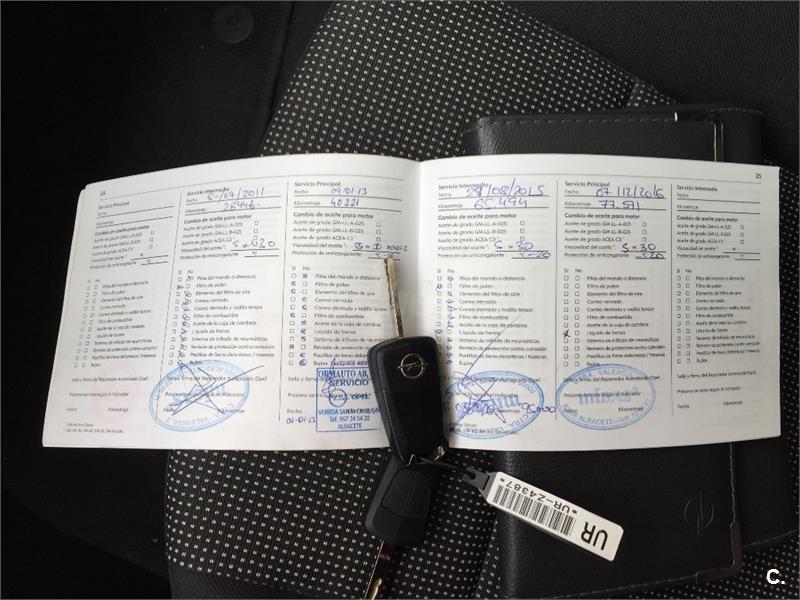 24
Servicio Principal
Fecha
Kilometraje
Cambio de aceite para motor
Aceite de grado GM-LL-A-025
Aceite de grado GM-LL-B-025
Aceite de grado ACEA C3
Viscosidad del aceite
Protección de anticongelante
Sí No
Pilas del mando a distancia
Filtro de polen
Elemento del filtro de aire
Correa nervada
Correa dentada y rodillo tensor
Filtro de combustible
Aceite de la caja de cambios
Líquido de frenos
Sistema de inflado de neumáticos
Pastillas de freno delanteras / traseras
Bujías
Sello y firma del Reparador Autorizado Opel
Próximo servicio según el indicador
Fecha Kilometraje
Servicio Intermedio
Fecha 5-/07/2011
Kilometraje 26446.-
Cambio de aceite para motor
Aceite de grado GM-LL-A-025
Aceite de grado GM-LL-B-025
Aceite de grado ACEA C3
Viscosidad del aceite
Protección de anticongelante
Sí No
Pilas del mando a distancia
Filtro de polen
Elemento del filtro de aire
Correa nervada
Correa dentada y rodillo tensor
Filtro de combustible
Aceite de la caja de cambios
Líquido de frenos
Sistema de inflado de neumáticos
Revisión de protección contra corrosión
Pastillas de freno delanteras / traseras
Bujías
VALENCIA
Servicio Principal
Fecha 09-01-13
Kilometraje 40221
Cambio de aceite para motor
Aceite de grado GM-LL-A-025
Aceite de grado GM-LL-B-025
Aceite de grado ACEA C3
Viscosidad del aceite
Protección de anticongelante
Sí No
Pilas del mando a distancia
Filtro de polen
Elemento del filtro de aire
Correa nervada
Correa dentada y rodillo tensor
Filtro de combustible
Aceite de la caja de cambios
Líquido de frenos
Sistema de inflado de neumáticos
Revisión de protección contra corrosión
Pastillas de freno delanteras
Bujías
ORMAUTO AB,
SERVICIO
OPEL
VEREDA SANTA CRUZ, S/N
Tel. 967 24 54 20
ALBACETE
09-01-13
25
Servicio Intermedio
Fecha 28/08/2015
Kilometraje 65.494
Cambio de aceite para motor
Aceite de grado GM-LL-A-025
Aceite de grado GM-LL-B-025
Aceite de grado ACEA C3
Viscosidad del aceite 5 w 30
Protección de anticongelante
Sí No
Pilas del mando a distancia
Filtro de polen
Elemento del filtro de aire
Correa nervada
Correa dentada y rodillo tensor
Filtro de combustible
Aceite de la caja de cambios
Líquido de frenos
Sistema de inflado de neumáticos
Pastillas de freno delanteras / traseras
Bujías
Servicio Principal
Fecha 07/12/2016
Kilometraje 77.571
Cambio de aceite para motor
Aceite de grado GM-LL-A-025
Aceite de grado GM-LL-B-025
Aceite de grado ACEA C3
Viscosidad del aceite 5 w 30
Protección de anticongelante
Sí No
Pilas del mando a distancia
Filtro de polen
Elemento del filtro de aire
Correa nervada
Correa dentada y rodillo tensor
Filtro de combustible
Aceite de la caja de cambios
Líquido de frenos
Sistema de inflado de neumáticos
Revisión de protección contra corrosión
Pastillas de freno delanteras / traseras
Bujías
VALENCIA
ALBACETE
Servicio Intermedio
Fecha
Kilometraje
Cambio de aceite para motor
Aceite de grado GM-LL-A-025
Aceite de grado GM-LL-B-025
Aceite de grado ACEA C3
Viscosidad del aceite
Protección de anticongelante
Sí No
Pilas del mando a distancia
Filtro de polen
Elemento del filtro de aire
Correa nervada
Correa dentada y rodillo tensor
Filtro de combustible
Aceite de la caja de cambios
Líquido de frenos
Sistema de inflado de neumáticos
Pastillas de freno delanteras / traseras
Bujías
Sello y firma del Reparador Autorizado Opel
Próximo servicio según el indicador
Fecha Kilometraje
UR
*UR-Z4387*
C.